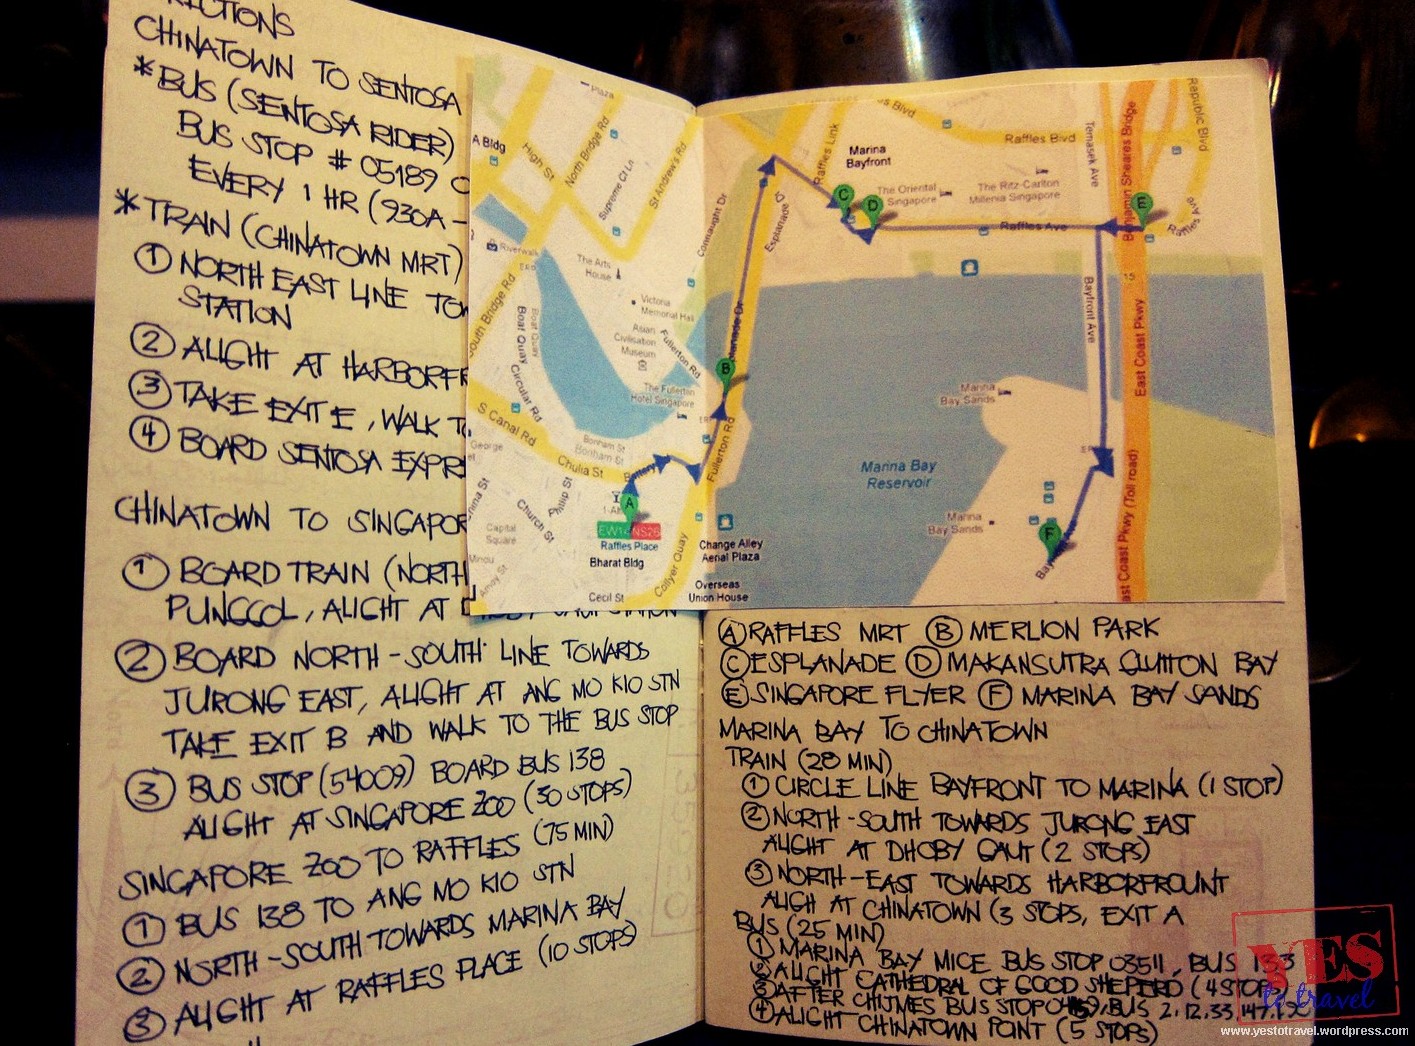 CHINATOWN TO SENTOSA
*BUS (SENTOSA RIDER)
BUS STOP # 05189
EVERY 1 HR (930A -
*TRAIN (CHINATOWN MRT)
1 NORTH EAST LINE
STATION
2 ALIGHT AT
3 TAKE EXIT E, WALK
4 BOARD SENTOSA
CHINATOWN TO
1 BOARD TRAIN (NORTH
PUNGGOL, ALIGHT AT
2 BOARD NORTH-SOUTH LINE TOWARDS
JURONG EAST, ALIGHT AT ANG MO KIO STN
TAKE EXIT B AND WALK TO THE BUS STOP
3 BUS STOP (54009) BOARD BUS 138
ALIGHT AT SINGAPORE ZOO (30 STOPS)
SINGAPORE ZOO TO RAFFLES (75 MIN)
1 BUS 138 TO ANG MO KIO STN
2 NORTH-SOUTH TOWARDS MARINA BAY
3 ALIGHT AT RAFFLES PLACE (10 STOPS)
Plaza
A Bldg
High St
North Bridge Rd
Supreme Ct Ln
St Andrew's Rd
Connaught Dr
Esplanade
Raffles Link
Marina
Bayfront
Raffles Blvd
Temasek Ave
Benjamin Sheares Bridge
Republic Blvd
The Oriental
Singapore
The Ritz-Carlton
Millenia Singapore
C
D
E
Raffles Ave
Raffles Ave
Riverwalk
The Arts
House
Victoria
Memorial Hall
Asian
Civilisation
Museum
Fullerton Rd
The Fullerton
Hotel Singapore
South Bridge Rd
Boat Quay
Boat Quay
Circular Rd
B
Bayfront Ave
15
East Coast Pkwy
S Canal Rd
Bonham St
Bonham St
Chulia St
Battery
Fullerton Rd
Marina
Bay Sands
Marina Bay
Reservoir
George
Church St
Phillip St
A
NS26
Raffles Place
Bharat Bldg
Capital
Square
Cecil St
Collyer Quay
Change Alley
Aerial Plaza
Overseas
Union House
Marina
Bay Sands
F
East Coast Pkwy (Toll road)
A RAFFLES MRT B MERLION PARK
C ESPLANADE D MAKANSUTRA GLUTTON BAY
E SINGAPORE FLYER F MARINA BAY SANDS
MARINA BAY TO CHINATOWN
TRAIN (28 MIN)
1 CIRCLE LINE BAYFRONT TO MARINA (1 STOP)
2 NORTH-SOUTH TOWARDS JURONG EAST
ALIGHT AT DHOBY GAUT (2 STOPS)
3 NORTH-EAST TOWARDS HARBORFROUNT
ALIGH AT CHINATOWN (3 STOPS, EXIT A
BUS (25 MIN)
1 MARINA BAY MICE BUS STOP 03511, BUS 133
2 ALIGHT CATHEDRAL OF GOOD SHEPERD (4 STOPS)
3 AFTER CHIJMES BUS STOP BUS 2.12.33.147.190
4 ALIGHT CHINATOWN POINT (5 STOPS)
YES
to travel
www.yestotravel.wordpress.com